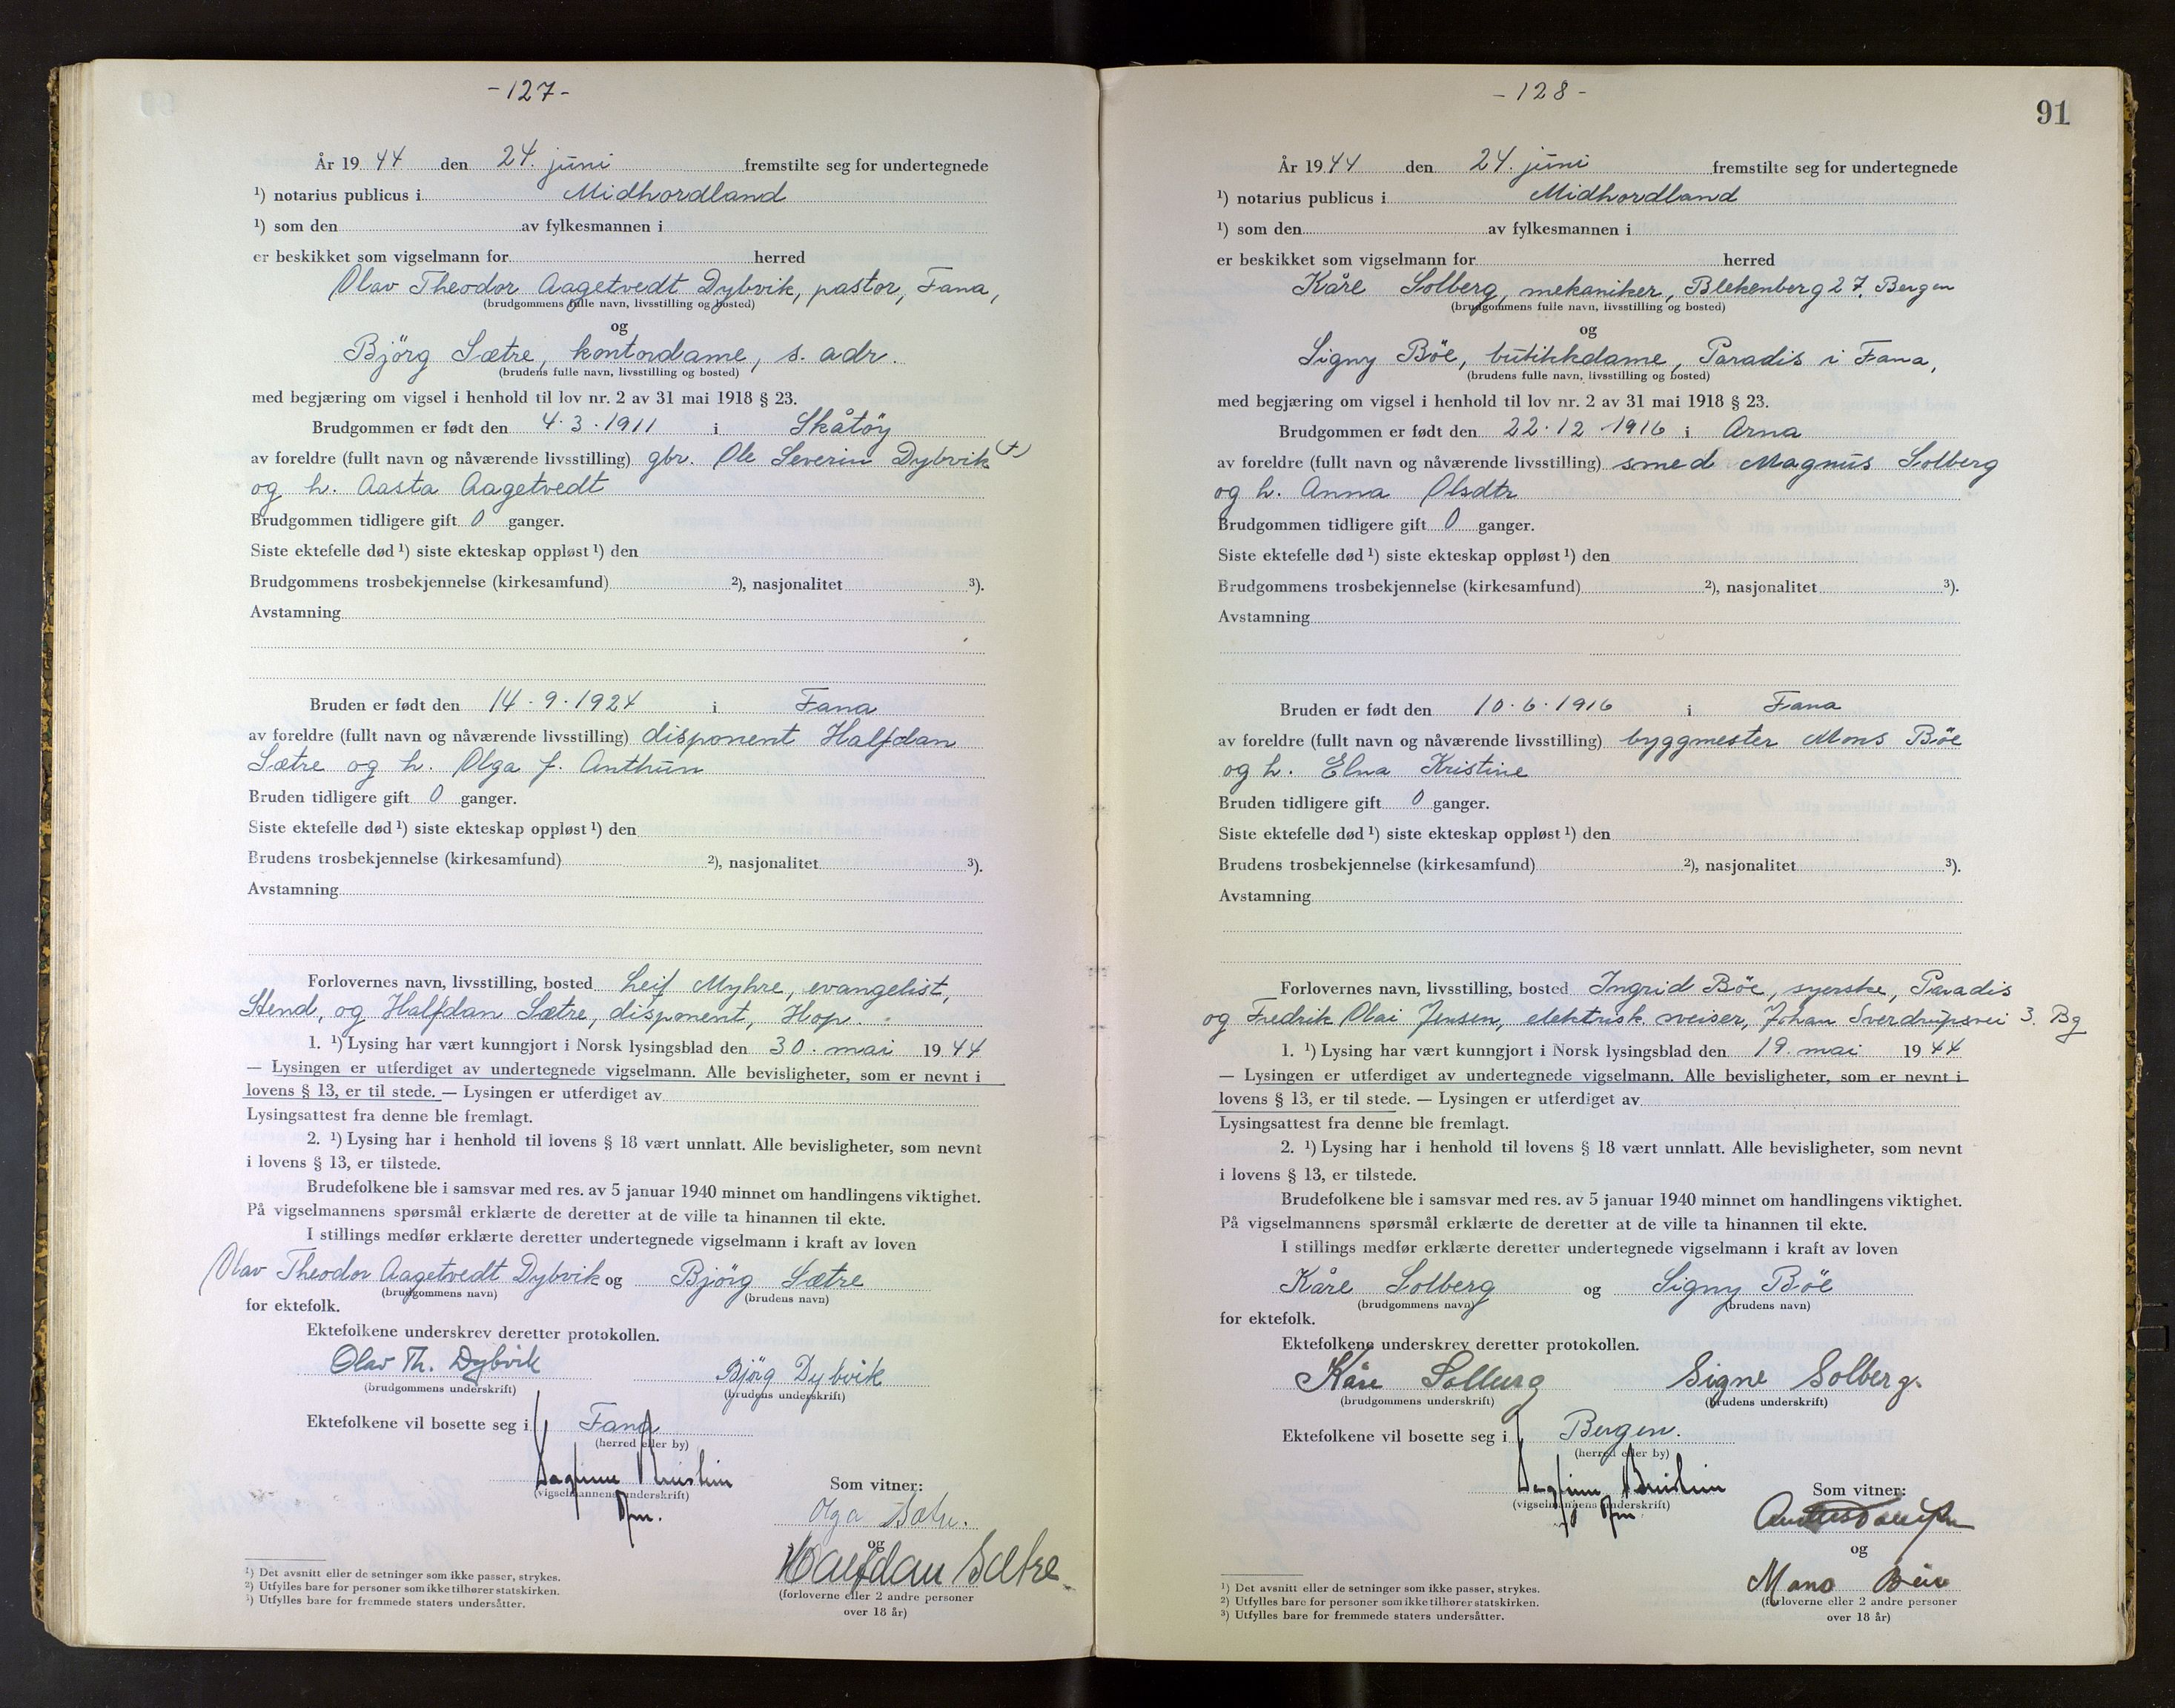 -127-
År 19 44 den 24. juni fremstilte seg for undertegnede
¹) notarius publicus i Midhordland
¹) som den av fylkesmannen i
er beskikket som vigselmann for herred
Olav Theodor Aagetvedt Dybvik, pastor, Fana,
(brudgommens fulle navn, livsstilling og bosted)
og
Björg Sætre, kontordame, s. adr.
(brudens fulle navn, livsstilling og bosted)
med begjæring om vigsel i henhold til lov nr. 2 av 31 mai 1918 § 23.
Brudgommen er født den 4.3.1911 i Skåtöy
av foreldre (fullt navn og nåværende livsstilling) gbr. Ole Severin Dybvik (+)
og h. Aasta Aagetvedt
Brudgommen tidligere gift 0 ganger.
Siste ektefelle død ¹) siste ekteskap oppløst ¹) den
Brudgommens trosbekjennelse (kirkesamfund) ²), nasjonalitet ³).
Avstamning
Bruden er født den 14.9.1924 i Fana
av foreldre (fullt navn og nåværende livsstilling) disponent Halfdan
Sætre og h. Olga f. Anthun
Bruden tidligere gift 0 ganger.
Siste ektefelle død ¹) siste ekteskap oppløst ¹) den
Brudens trosbekjennelse (kirkesamfund) ²), nasjonalitet ³).
Avstamning
Forlovernes navn, livsstilling, bosted Leif Myhre, evangelist,
Stend, og Halfdan Sætre, disponent, Hop.
1. ¹) Lysing har vært kunngjort i Norsk lysingsblad den 30. mai 19 44
— Lysingen er utferdiget av undertegnede vigselmann. Alle bevisligheter, som er nevnt i
lovens § 13, er til stede. — Lysingen er utferdiget av
Lysingsattest fra denne ble fremlagt.
2. ¹) Lysing har i henhold til lovens § 18 vært unnlatt. Alle bevisligheter, som nevnt
i lovens § 13, er tilstede.
Brudefolkene ble i samsvar med res. av 5 januar 1940 minnet om handlingens viktighet.
På vigselmannens spørsmål erklærte de deretter at de ville ta hinannen til ekte.
I stillings medfør erklærte deretter undertegnede vigselmann i kraft av loven
Olav Theodor Aagetvedt Dybvik og Björg Sætre
(brudgommens navn) (brudens navn)
for ektefolk.
Ektefolkene underskrev deretter protokollen.
Olav Th. Dybvik Björg Dybvik
(brudgommens underskrift) (brudens underskrift)
Ektefolkene vil bosette seg i Fana
(herred eller by)
(vigselmannens underskrift)
Som vitner:
Olga Sætre.
og
Halfdan Sætre
(forloverne eller 2 andre personer
over 18 år)
¹) Det avsnitt eller de setninger som ikke passer, strykes.
²) Utfylles bare for personer som ikke tilhører statskirken.
³) Utfylles bare for fremmede staters undersåtter.
-128-
91
År 19 44 den 24. juni fremstilte seg for undertegnede
¹) notarius publicus i Midhordland
¹) som den av fylkesmannen i
er beskikket som vigselmann for herred
Kåre Solberg, mekaniker, Blekenberg 27, Bergen
(brudgommens fulle navn, livsstilling og bosted)
og
Signy Böe, butikkdame, Paradis i Fana,
(brudens fulle navn, livsstilling og bosted)
med begjæring om vigsel i henhold til lov nr. 2 av 31 mai 1918 § 23.
Brudgommen er født den 22.12.1916 i Arna
av foreldre (fullt navn og nåværende livsstilling) smed Magnus Solberg
og h. Anna Olsdtr
Brudgommen tidligere gift 0 ganger.
Siste ektefelle død ¹) siste ekteskap oppløst ¹) den
Brudgommens trosbekjennelse (kirkesamfund) ²), nasjonalitet ³).
Avstamning
Bruden er født den 10.6.1916 i Fana
av foreldre (fullt navn og nåværende livsstilling) byggmester Mons Böe
og h. Elna Kristine
Bruden tidligere gift 0 ganger.
Siste ektefelle død ¹) siste ekteskap oppløst ¹) den
Brudens trosbekjennelse (kirkesamfund) ²), nasjonalitet ³).
Avstamning
Forlovernes navn, livsstilling, bosted Ingrid Böe, syerske, Paradis
og Fredrik Olai Jensen, elektrisk sveiser, Johan Sverdrupsvei 3. Bg
1. ¹) Lysing har vært kunngjort i Norsk lysingsblad den 19. mai 19 44
— Lysingen er utferdiget av undertegnede vigselmann. Alle bevisligheter, som er nevnt i
lovens § 13, er til stede. — Lysingen er utferdiget av
Lysingsattest fra denne ble fremlagt.
2. ¹) Lysing har i henhold til lovens § 18 vært unnlatt. Alle bevisligheter, som nevnt
i lovens § 13, er tilstede.
Brudefolkene ble i samsvar med res. av 5 januar 1940 minnet om handlingens viktighet.
På vigselmannens spørsmål erklærte de deretter at de ville ta hinannen til ekte.
I stillings medfør erklærte deretter undertegnede vigselmann i kraft av loven
Kåre Solberg og Signy Böe
(brudgommens navn) (brudens navn)
for ektefolk.
Ektefolkene underskrev deretter protokollen.
Kåre Solberg Signe Solberg.
(brudgommens underskrift) (brudens underskrift)
Ektefolkene vil bosette seg i Bergen.
(herred eller by)
(vigselmannens underskrift)
Som vitner:
og
Mons Böe
(forloverne eller 2 andre personer
over 18 år)
¹) Det avsnitt eller de setninger som ikke passer, strykes.
²) Utfylles bare for personer som ikke tilhører statskirken.
³) Utfylles bare for fremmede staters undersåtter.